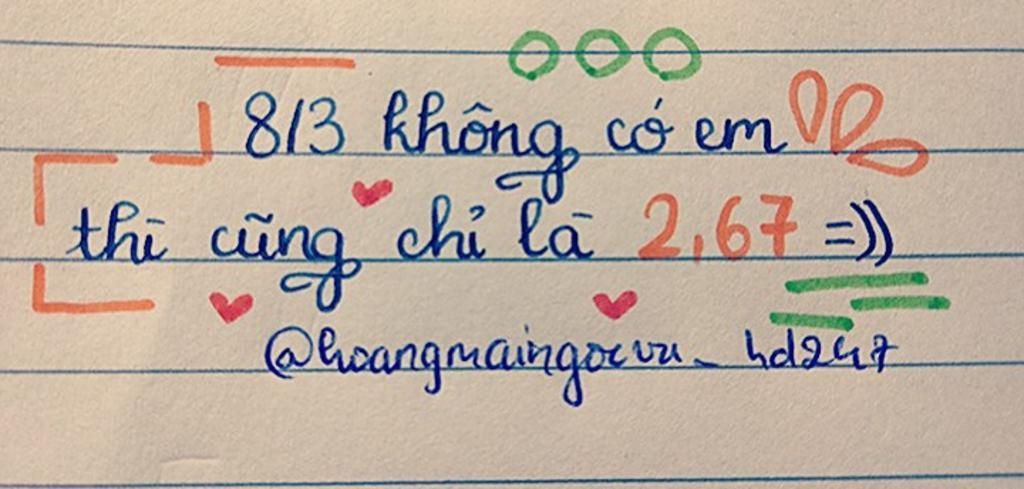 8/3 không có em
thì cũng chỉ là 2,67 =))
@hoangmaingocvu_hd247